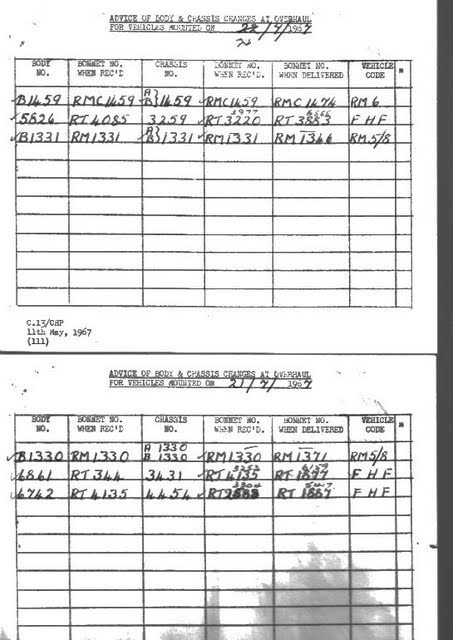 ADVICE OF BODY & CHASSIS CHANGES AT OVERHAUL
FOR VEHICLES MOUNTED ON 22/7/1967
21
BODY NO. BONNET NO. WHEN REC'D CHASSIS NO. BONNET NO. WHEN REC'D. BONNET NO. WHEN DELIVERED VEHICLE CODE *
B1459 RMC1459 A B}1459 RMC1459 RMC1474 RM6
5826 RT4085 3259 3977 RT3220 RT3883 FHF
B1331 RM1331 A B}1331 RM1331 RM1366 RM5/8
C.13/CHP
11th May, 1967
(111)
ADVICE OF BODY & CHASSIS CHANGES AT OVERHAUL
FOR VEHICLES MOUNTED ON 21/7/1967
BODY NO. BONNET NO. WHEN REC'D CHASSIS NO. BONNET NO. WHEN REC'D. BONNET NO. WHEN DELIVERED VEHICLE CODE *
B1330 RM1330 A 1330 B 1330 RM1330 RM1371 RM5/8
6861 RT344 3431 RT4135 FHF
6742 RT4135 4454 FHF